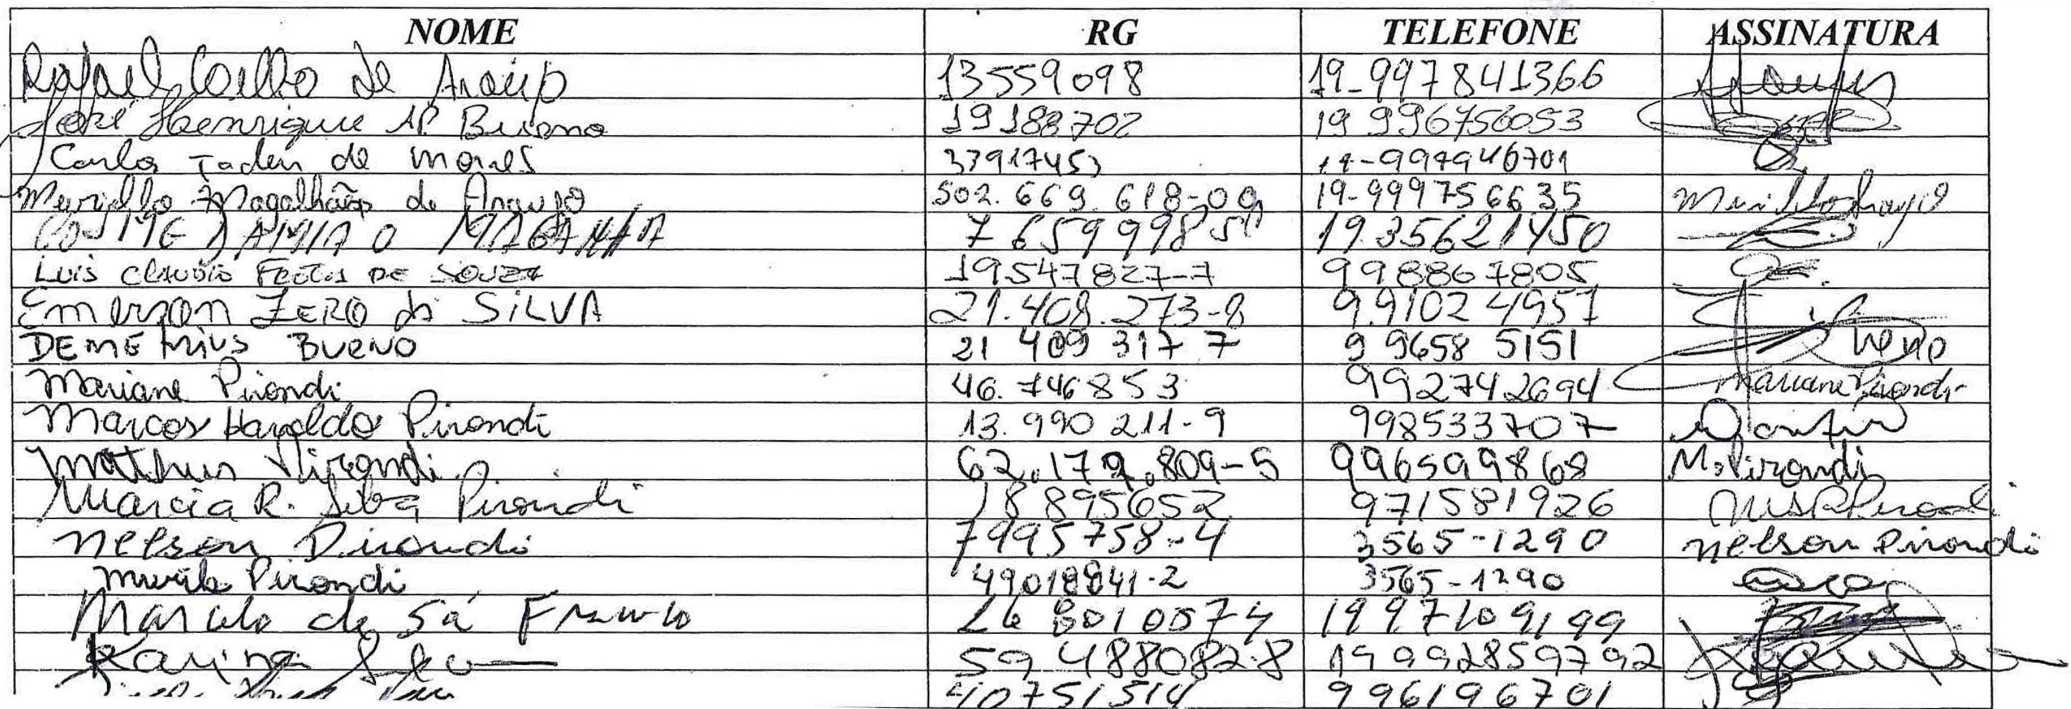 NOME RG TELEFONE ASSINATURA
Rafael Coelho de Araújo 13559098 19-997841366
José Henrique AP Bueno 19183702 19 996756053
Carlos Tadeu de Moraes 33917453 997946701
Murillo Magalhães de Araujo 502.669.618-09 19-999756635 Murillo Araujo
COSME DAMIAO 19.35621450
LUIS CLAUDIO DE SOUZA 19547827-7 998867805
Emerson ZERO da SILVA 21.408.273-8 9.91024957
DEMETRIUS BUENO 21 409 317 7 9 9658 5151
Mariane Pirondi 46.746853 992742694 Mariane Pirondi
Marcos Haroldo Pirondi 13.990 211-9 998533707
Matheus Pirondi 62.179.809-5 996599868 M.Pirondi
Marcia R. Silva Pirondi 18895652 971581926
Nelson Pirondi 7995758-4 3565-1290 Nelson Pirondi
Murilo Pirondi 49018841-2 3565-1290
Marcelo de Sá 1997109199
Karina 59 4880828 19992859792
40751514 996196701